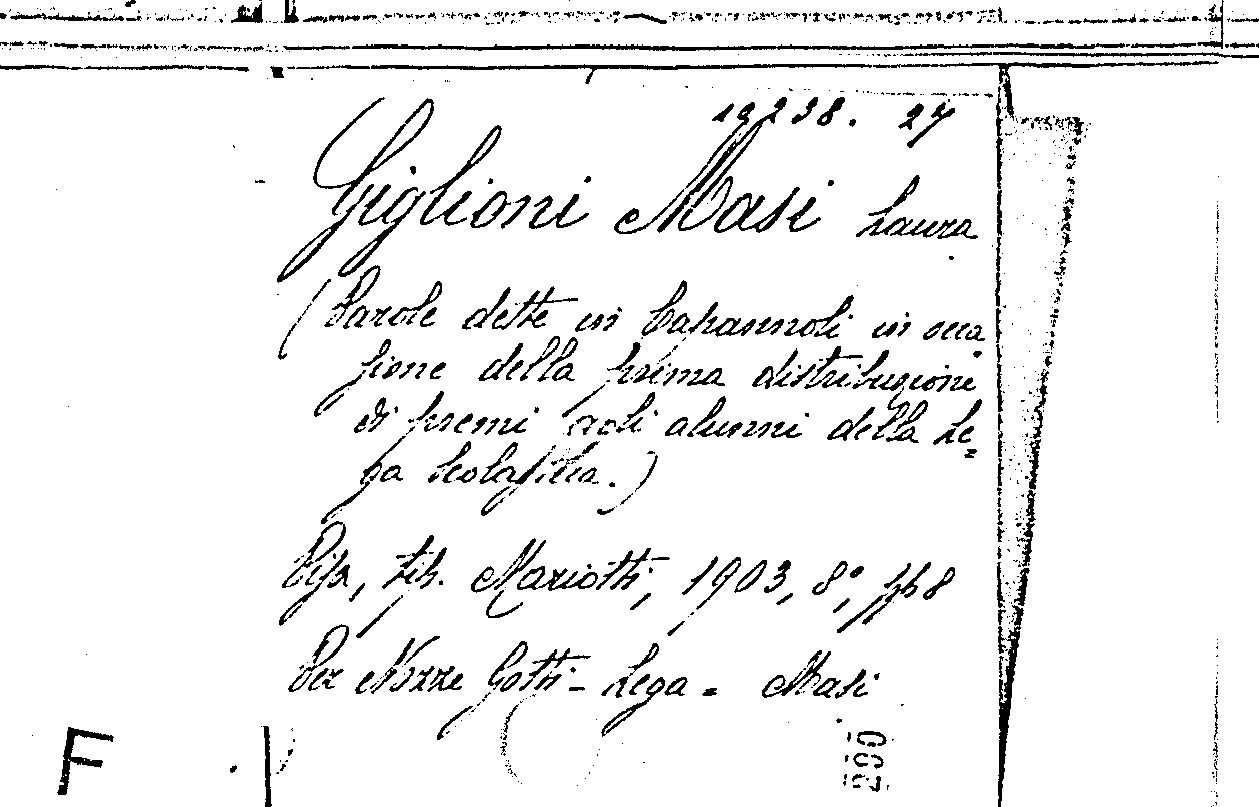 19238. 27
Giglioni Masi Laura
(Parole dette in Capannoli in occa
sione della prima distribuzione
di premi agli alunni della Le=
ga Scolastica.)
Pisa, tip. Mariotti, 1903, 8º, pp 8
Per Nozze Gotti-Lega = Masi
200
F